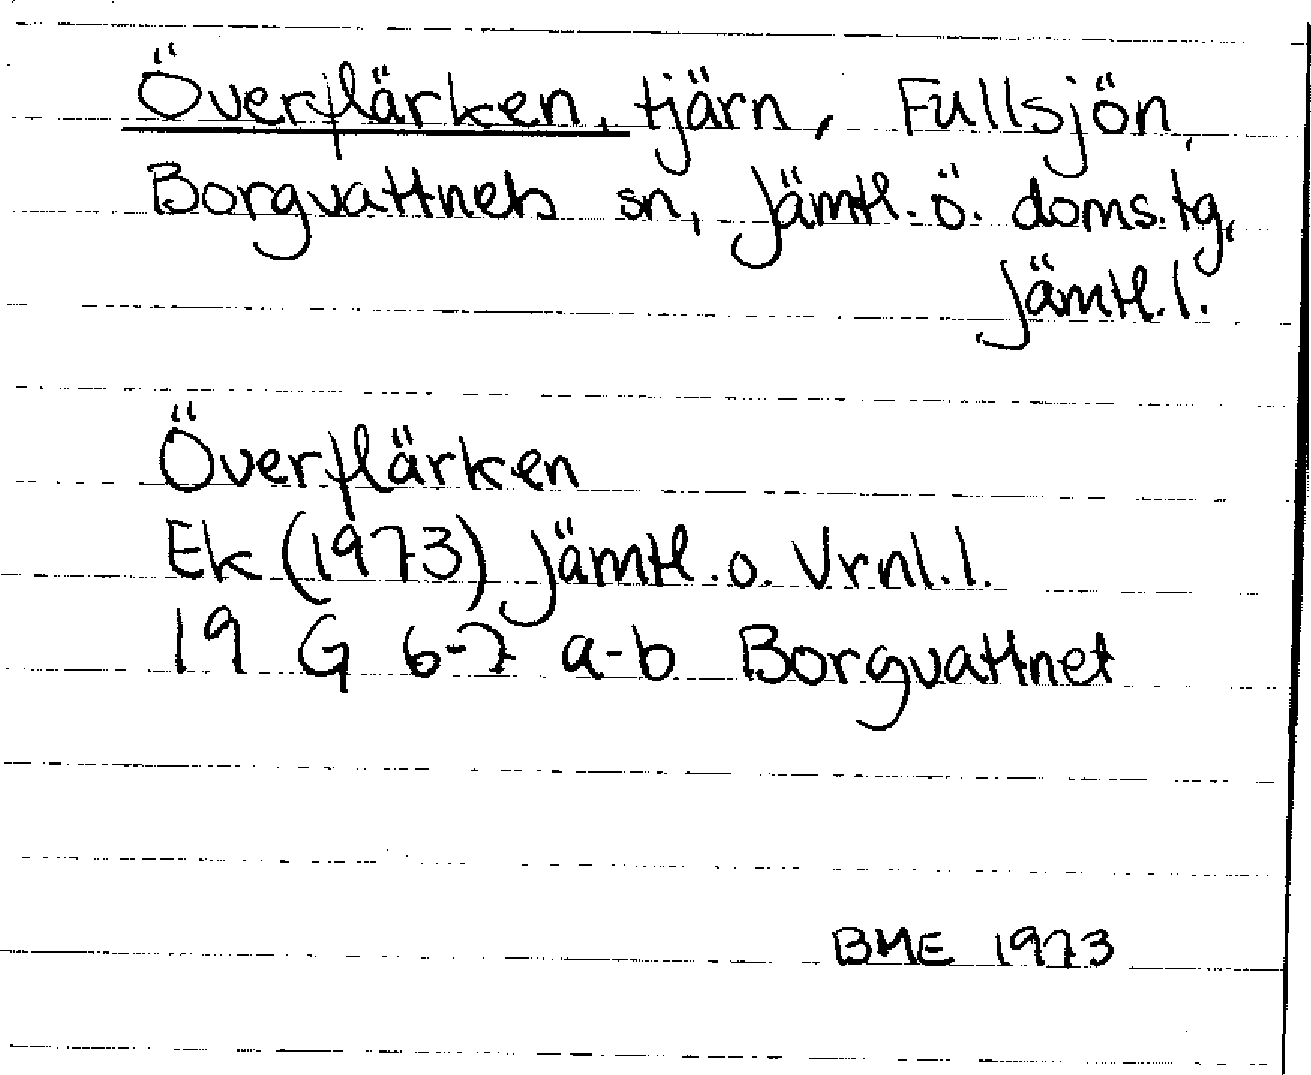 Överflärken, tjärn, Fullsjön,
Borgvattnets sn, Jämtl. ö. doms. tg,
Jämtl. l.
Överflärken
Ek (1973) Jämtl. o. Vrnl. l.
19 G 6-7 a-b Borgvattnet
BME 1973